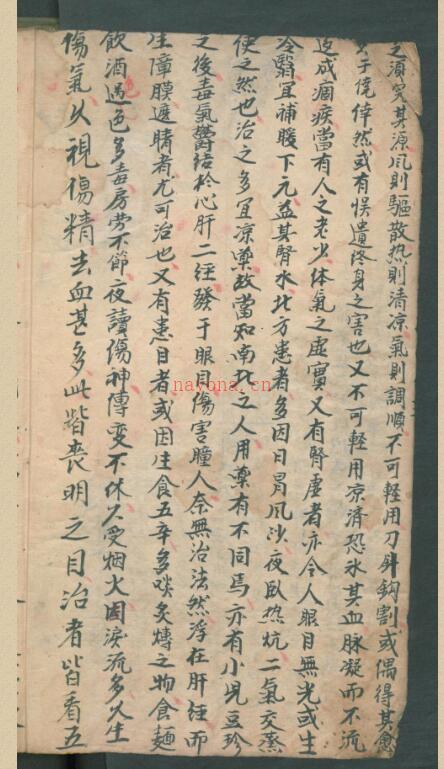 之須究其源风則驅散热則清凉氣則調順不可軽用刀針鈎割或偶得其愈
于侥倖然或有悮遺终身之害也又不可軽用凉済恐氷其血脉凝而不流
成痼疾當有人之老少体氣之虚實又有腎虚者亦令人眼目無光或生
冷翳宜補暖下元益其腎水北方患者多因日冐风沙夜卧热炕二氣交蒸
使之然也治之多宜凉藥故當知南北之人用藥有不同焉亦有小児豆疹
之後毒氣鬱结於心肝二经發于眼目傷害瞳人奈無治法然浮在肝经而
生障膜遮睛者尤可治也又有患目者或因生食五辛多啖炙煿之物食麺
飲酒過色多毒房劳不節夜讀傷神博变不休久受烟火因淚流多久生
傷氣久視傷精去血甚多此皆喪明之目治者皆看五
nayona.cn